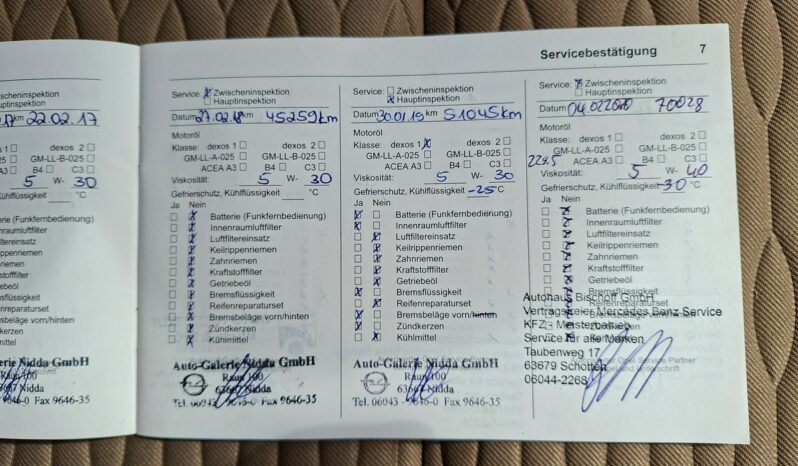 Servicebestätigung 7
Zwischeninspektion
Hauptinspektion
km 22.02.17
dexos 2
GM-LL-B-025
B4 C3
5 W- 30
Kühlflüssigkeit °C
(Funkfernbedienung)
Nidda GmbH
Raun 100
63667 Nidda
9646-0 Fax 9646-35
Service: Zwischeninspektion
Hauptinspektion
Datum 27.02.18 km 45259km
Motoröl
Klasse: dexos 1 dexos 2
GM-LL-A-025 GM-LL-B-025
ACEA A3 B4 C3
Viskosität: 5 W- 30
Gefrierschutz, Kühlflüssigkeit °C
Ja Nein
Batterie (Funkfernbedienung)
Innenraumluftfilter
Luftfiltereinsatz
Keilrippenriemen
Zahnriemen
Kraftstofffilter
Getriebeöl
Bremsflüssigkeit
Reifenreparaturset
Bremsbeläge vorn/hinten
Zündkerzen
Kühlmittel
Auto-Galerie Nidda GmbH
Raun 100
63667 Nidda
Tel. 06043 - 9646-0 Fax 9646-35
Service: Zwischeninspektion
Hauptinspektion
Datum 30.01.19 km 51045km
Motoröl
Klasse: dexos 1 dexos 2
GM-LL-A-025 GM-LL-B-025
ACEA A3 B4 C3
Viskosität: 5 W- 30
Gefrierschutz, Kühlflüssigkeit -25 °C
Ja Nein
Batterie (Funkfernbedienung)
Innenraumluftfilter
Luftfiltereinsatz
Keilrippenriemen
Zahnriemen
Kraftstofffilter
Getriebeöl
Bremsflüssigkeit
Reifenreparaturset
Bremsbeläge vorn/hinten
Zündkerzen
Kühlmittel
Auto-Galerie Nidda GmbH
Raun 100
63667 Nidda
Tel. 06043 - 9646-0 Fax 9646-35
Service: Zwischeninspektion
Hauptinspektion
Datum 04.022020 70028
Motoröl
Klasse: dexos 1 dexos 2
GM-LL-A-025 GM-LL-B-025
229.5 ACEA A3 B4 C3
Viskosität: 5 W- 40
Gefrierschutz, Kühlflüssigkeit -30 °C
Ja Nein
Batterie (Funkfernbedienung)
Innenraumluftfilter
Luftfiltereinsatz
Keilrippenriemen
Zahnriemen
Kraftstofffilter
Getriebeöl
Bremsflüssigkeit
Autohaus Bischoff GmbH
Vertragsfreier Mercedes Benz Service
KFZ - Meisterbetrieb
Service für alle Marken
Taubenweg 17
63679 Schotten
06044-2268